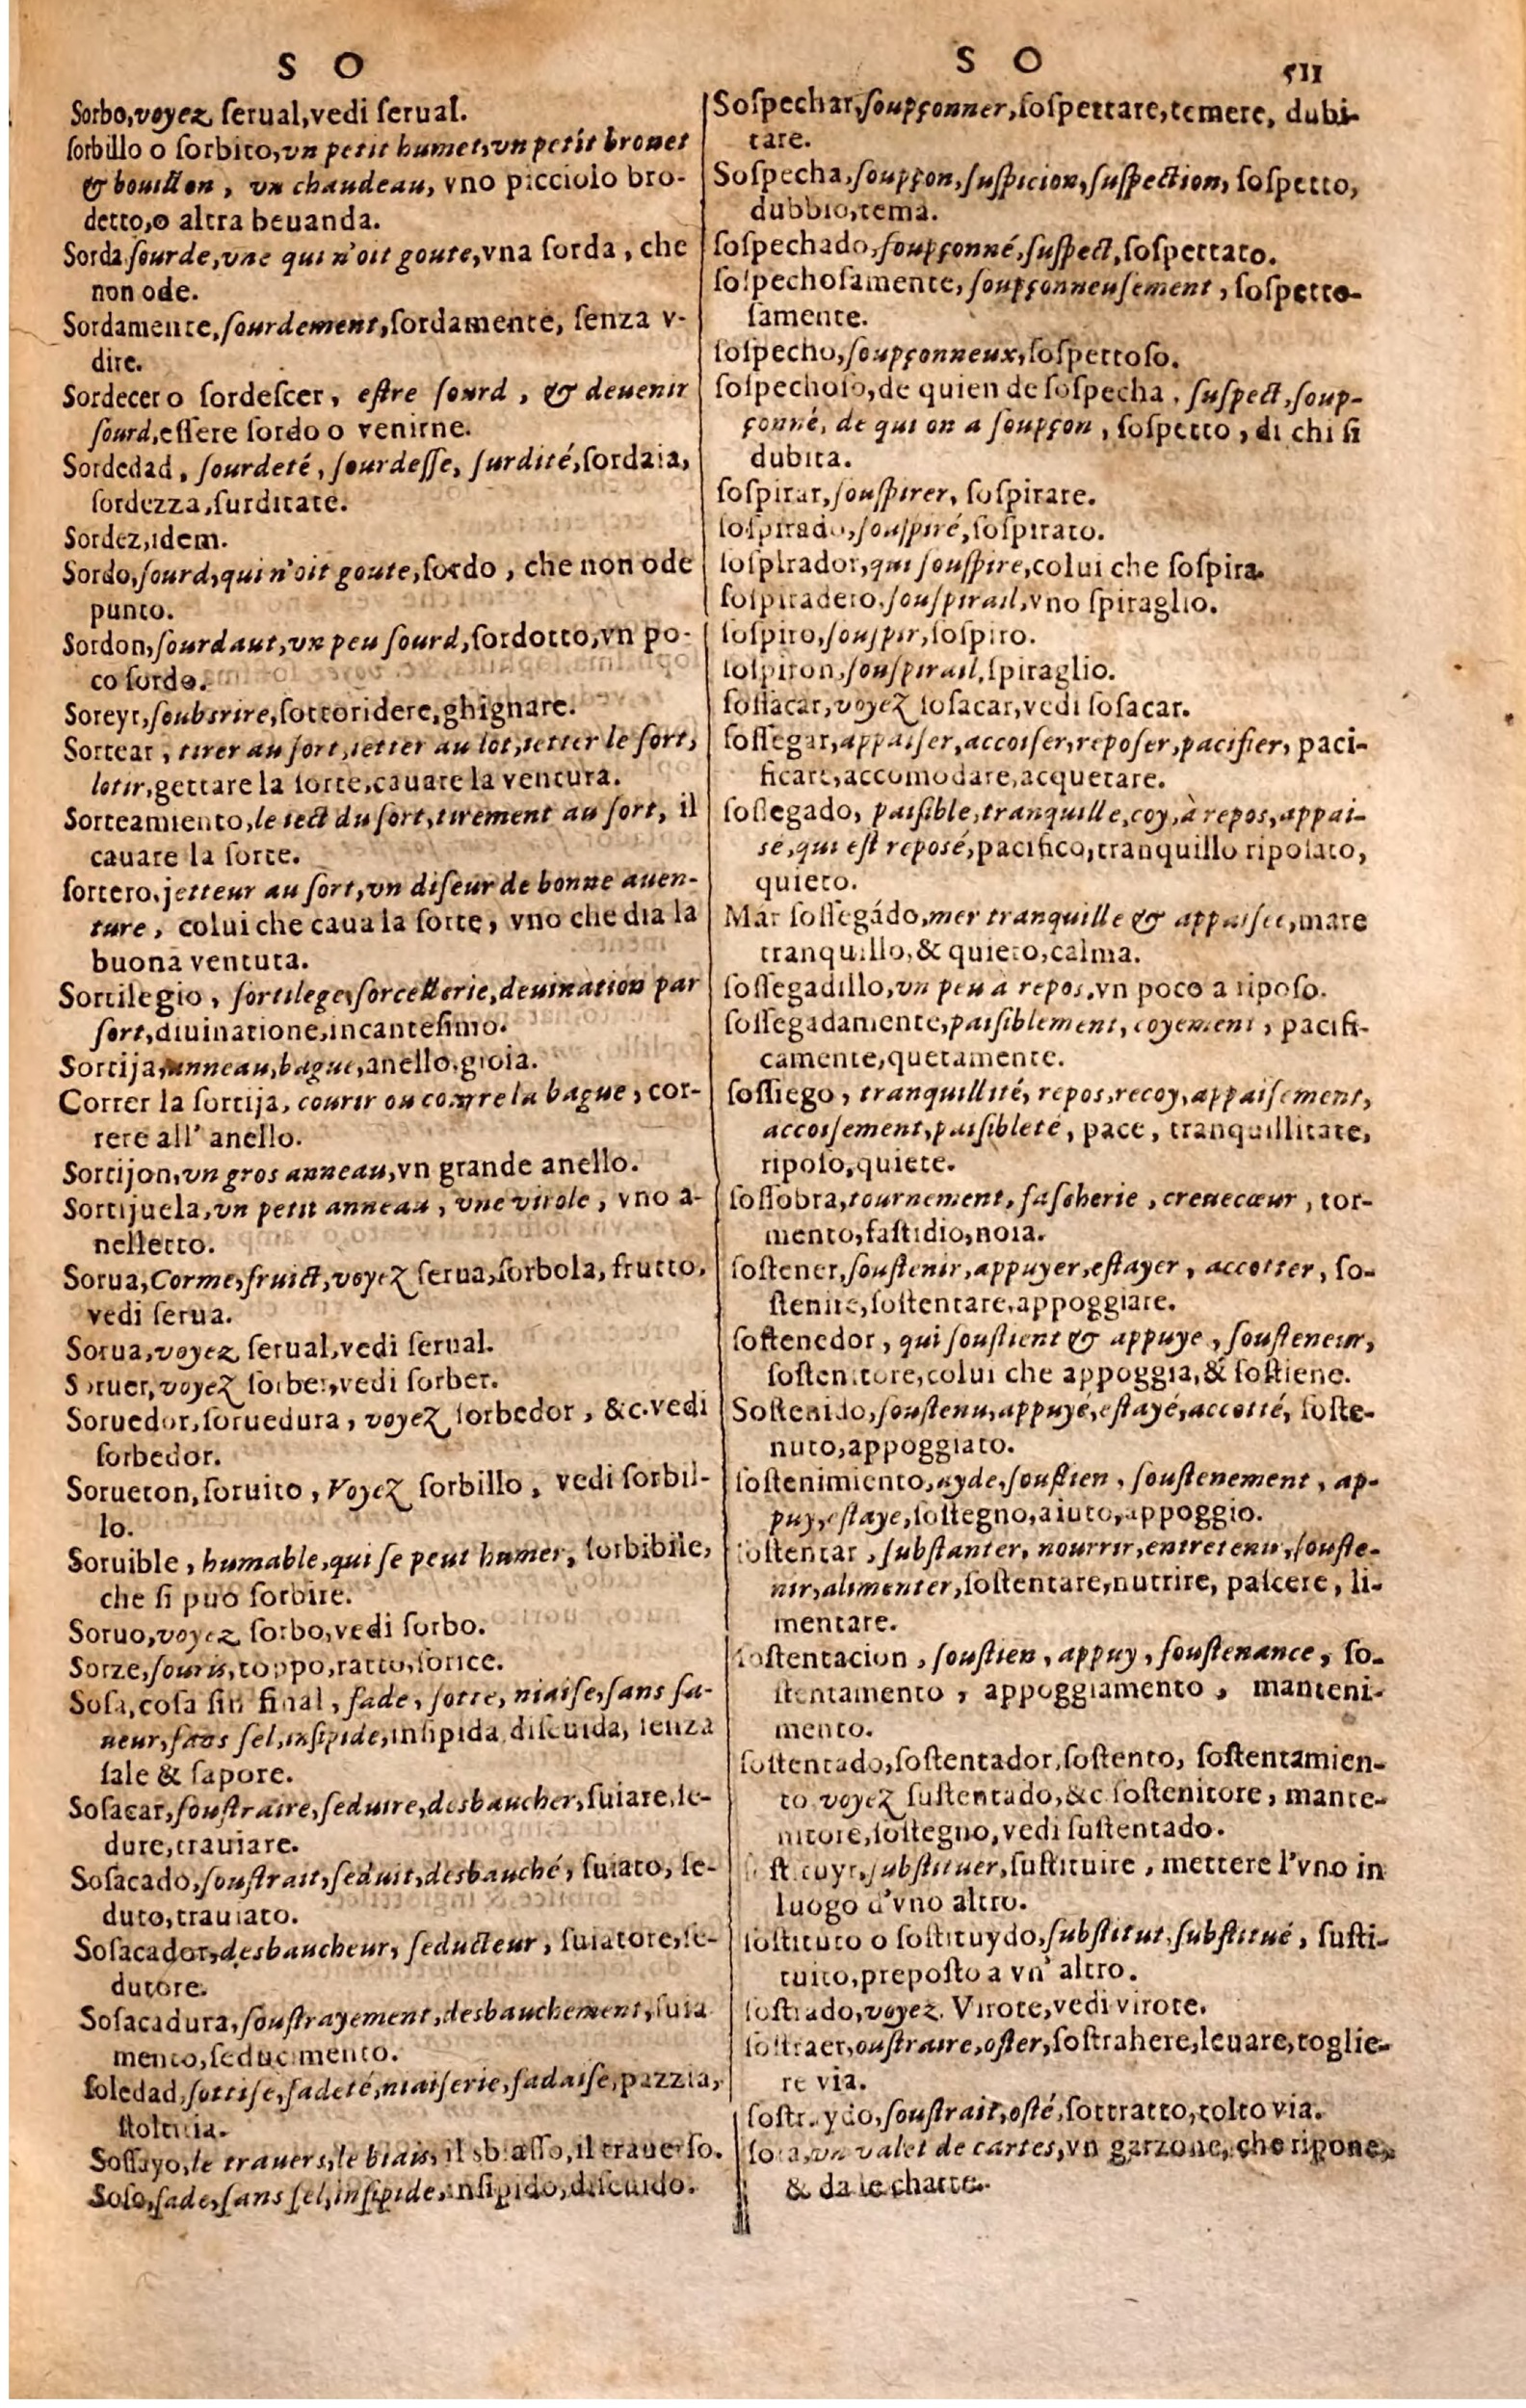 S O
Sorbo,voyez serual,vedi serual.
sorbillo o sorbito,vn petit humet,vn petit brouet
& bouillon, vn chaudeau, vno picciolo bro-
detto,o altra beuanda.
Sorda,sourde,vne qui n'oit goute,vna sorda, che
non ode.
Sordamente,sourdement,sordamente, senza v-
dire.
Sordecer o sordescer, estre sourd, & deuenir
sourd,essere sordo o venirne.
Sordedad, sourdeté, sourdesse, surdité,sordaia,
sordezza,surditate.
Sordez,idem.
Sordo,sourd,qui n'oit goute,sordo, che non ode
punto.
Sordon,sourdaut,vn peu sourd,sordotto,vn po-
co sordo.
Soreyr,soubsrire,sottoridere,ghignare.
Sortear, tirer au sort,ietter au lot,ietter le sort,
lotir,gettare la sorte,cauare la ventura.
Sorteamiento,le iect du sort,tirement au sort, il
cauare la sorte.
sortero,jetteur au sort,vn diseur de bonne auen-
ture, colui che caua la sorte, vno che dia la
buona ventura.
Sortilegio, sortilege,sorcellerie,deuination par
sort,diuinatione,incantesimo.
Sortija,anneau,bague,anello,gioia.
Correr la sortija, courir ou courre la bague, cor-
rere all' anello.
Sortijon,vn gros anneau,vn grande anello.
Sortijuela,vn petit anneau, vne virole, vno a-
nelletto.
Sorua,Corme,fruict,voyez serua,sorbola, frutto,
vedi serua.
Sorua,voyez serual,vedi serual.
Soruer,voyez sorber,vedi sorber.
Soruedor,soruedura, voyez sorbedor, &c.vedi
sorbedor.
Sorueton,soruito, Voyez sorbillo, vedi sorbil-
lo.
Soruible, humable,qui se peut humer, sorbibile,
che si può sorbire.
Soruo,voyez sorbo,vedi sorbo.
Sorze,souris,toppo,ratto,sorice.
Sosa,cosa sin final, fade, sotte, niaise,sans sa-
ueur,sans sel,insipide,insipida,disceuida, senza
sale & sapore.
Sosacar,soustraire,seduire,desbaucher,suiare,se-
dure,trauiare.
Sosacado,soustrait,seduit,desbauché, suiato, se-
duto,trauiato.
Sosacador,desbaucheur, seducteur, suiatore,se-
dutore.
Sosacadura,soustrayement,desbauchement,suia
mento,seducimento.
soledad,sottise,fadeté,niaiserie,fadaise,pazzia,
stoltitia.
Soslayo,le trauers,le biais, il sbiasso,il trauerso.
Soso,fade,sans sel,insipide,insipido,disceuido.
S O 511
Sospechar,soupçonner,sospettare,temere, dubi-
tare.
Sospecha,soupçon,suspicion,suspection, sospetto,
dubbio,tema.
sospechado,soupçonné,suspect,sospettato.
sospechosamente,soupçonneusement, sospetto-
samente.
sospecho,soupçonneux,sospettoso.
sospechoso,de quien de sospecha, suspect,soup-
çonné, de qui on a soupçon, sospetto, di chi si
dubita.
sospirar,souspirer, sospirare.
sospirado,souspiré,sospirato.
sospirador,qui souspire,colui che sospira.
sospiradero,souspirail,vno spiraglio.
sospiro,souspir,sospiro.
sospiron,souspirail,spiraglio.
sossacar,voyez sosacar,vedi sosacar.
sossegar,appaiser,accoiser,reposer,pacifier, paci-
ficare,accomodare,acquetare.
sossegado, paisible,tranquille,coy,à repos,appai-
sé,qui est reposé,pacifico,tranquillo riposato,
quieto.
Mar sossegádo,mer tranquille & appaisee,mare
tranquillo,& quieto,calma.
sossegadillo,vn peu à repos,vn poco a riposo.
sossegadamente,paisiblement, coyement, pacifi-
camente,quetamente.
sossiego, tranquillité, repos,recoy,appaisement,
accoisement,paisibleté, pace, tranquillitate,
riposo,quiete.
sossobra,tournement, fascherie, creuecœur, tor-
mento,fastidio,noia.
sostener,soustenir,appuyer,estayer, accotter, so-
stenire,sostentare,appoggiare.
sostenedor, qui soustient & appuye, sousteneur,
sostenitore,colui che appoggia,& sostiene.
Sostenido,soustenu,appuyé,estayé,accotté, soste-
nuto,appoggiato.
sostenimiento,ayde,soustien, soustenement, ap-
puy,estaye,sostegno,aiuto,appoggio.
sostentar, substanter, nourrir,entretenir,souste-
nir,alimenter,sostentare,nutrire, pascere, li-
mentare.
sostentacion, soustien, appuy, soustenance, so-
stentamento, appoggiamento, manteni-
mento.
sostentado,sostentador,sostento, sostentamien-
to voyez sustentado,&c sostenitore, mante-
nitore,sostegno,vedi sustentado.
sostituyr,substituer,sustituire, mettere l'vno in
luogo d'vno altro.
sostituto o sostituydo,substitut,substitué, susti-
tuito,preposto a vn' altro.
sostrado,voyez. Virote,vedi virote.
sostraer,oustraire,oster,sostrahere,leuare,toglie-
re via.
sostraydo,soustrait,osté,sottratto,tolto via.
sota,vn valet de cartes,vn garzone, che ripone,
& da le charte.